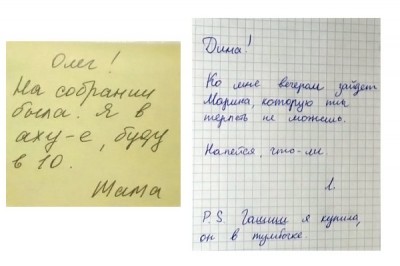 Олег!
На собрании
была. Я в
аху-е, буду
в 10.
Мама
Дима!
Ко мне вечером зайдет
Марина, которую ты
терпеть не можешь.
Напейся, что-ли.
Л.
P.S. Гашиш я купила,
он в тумбочке.